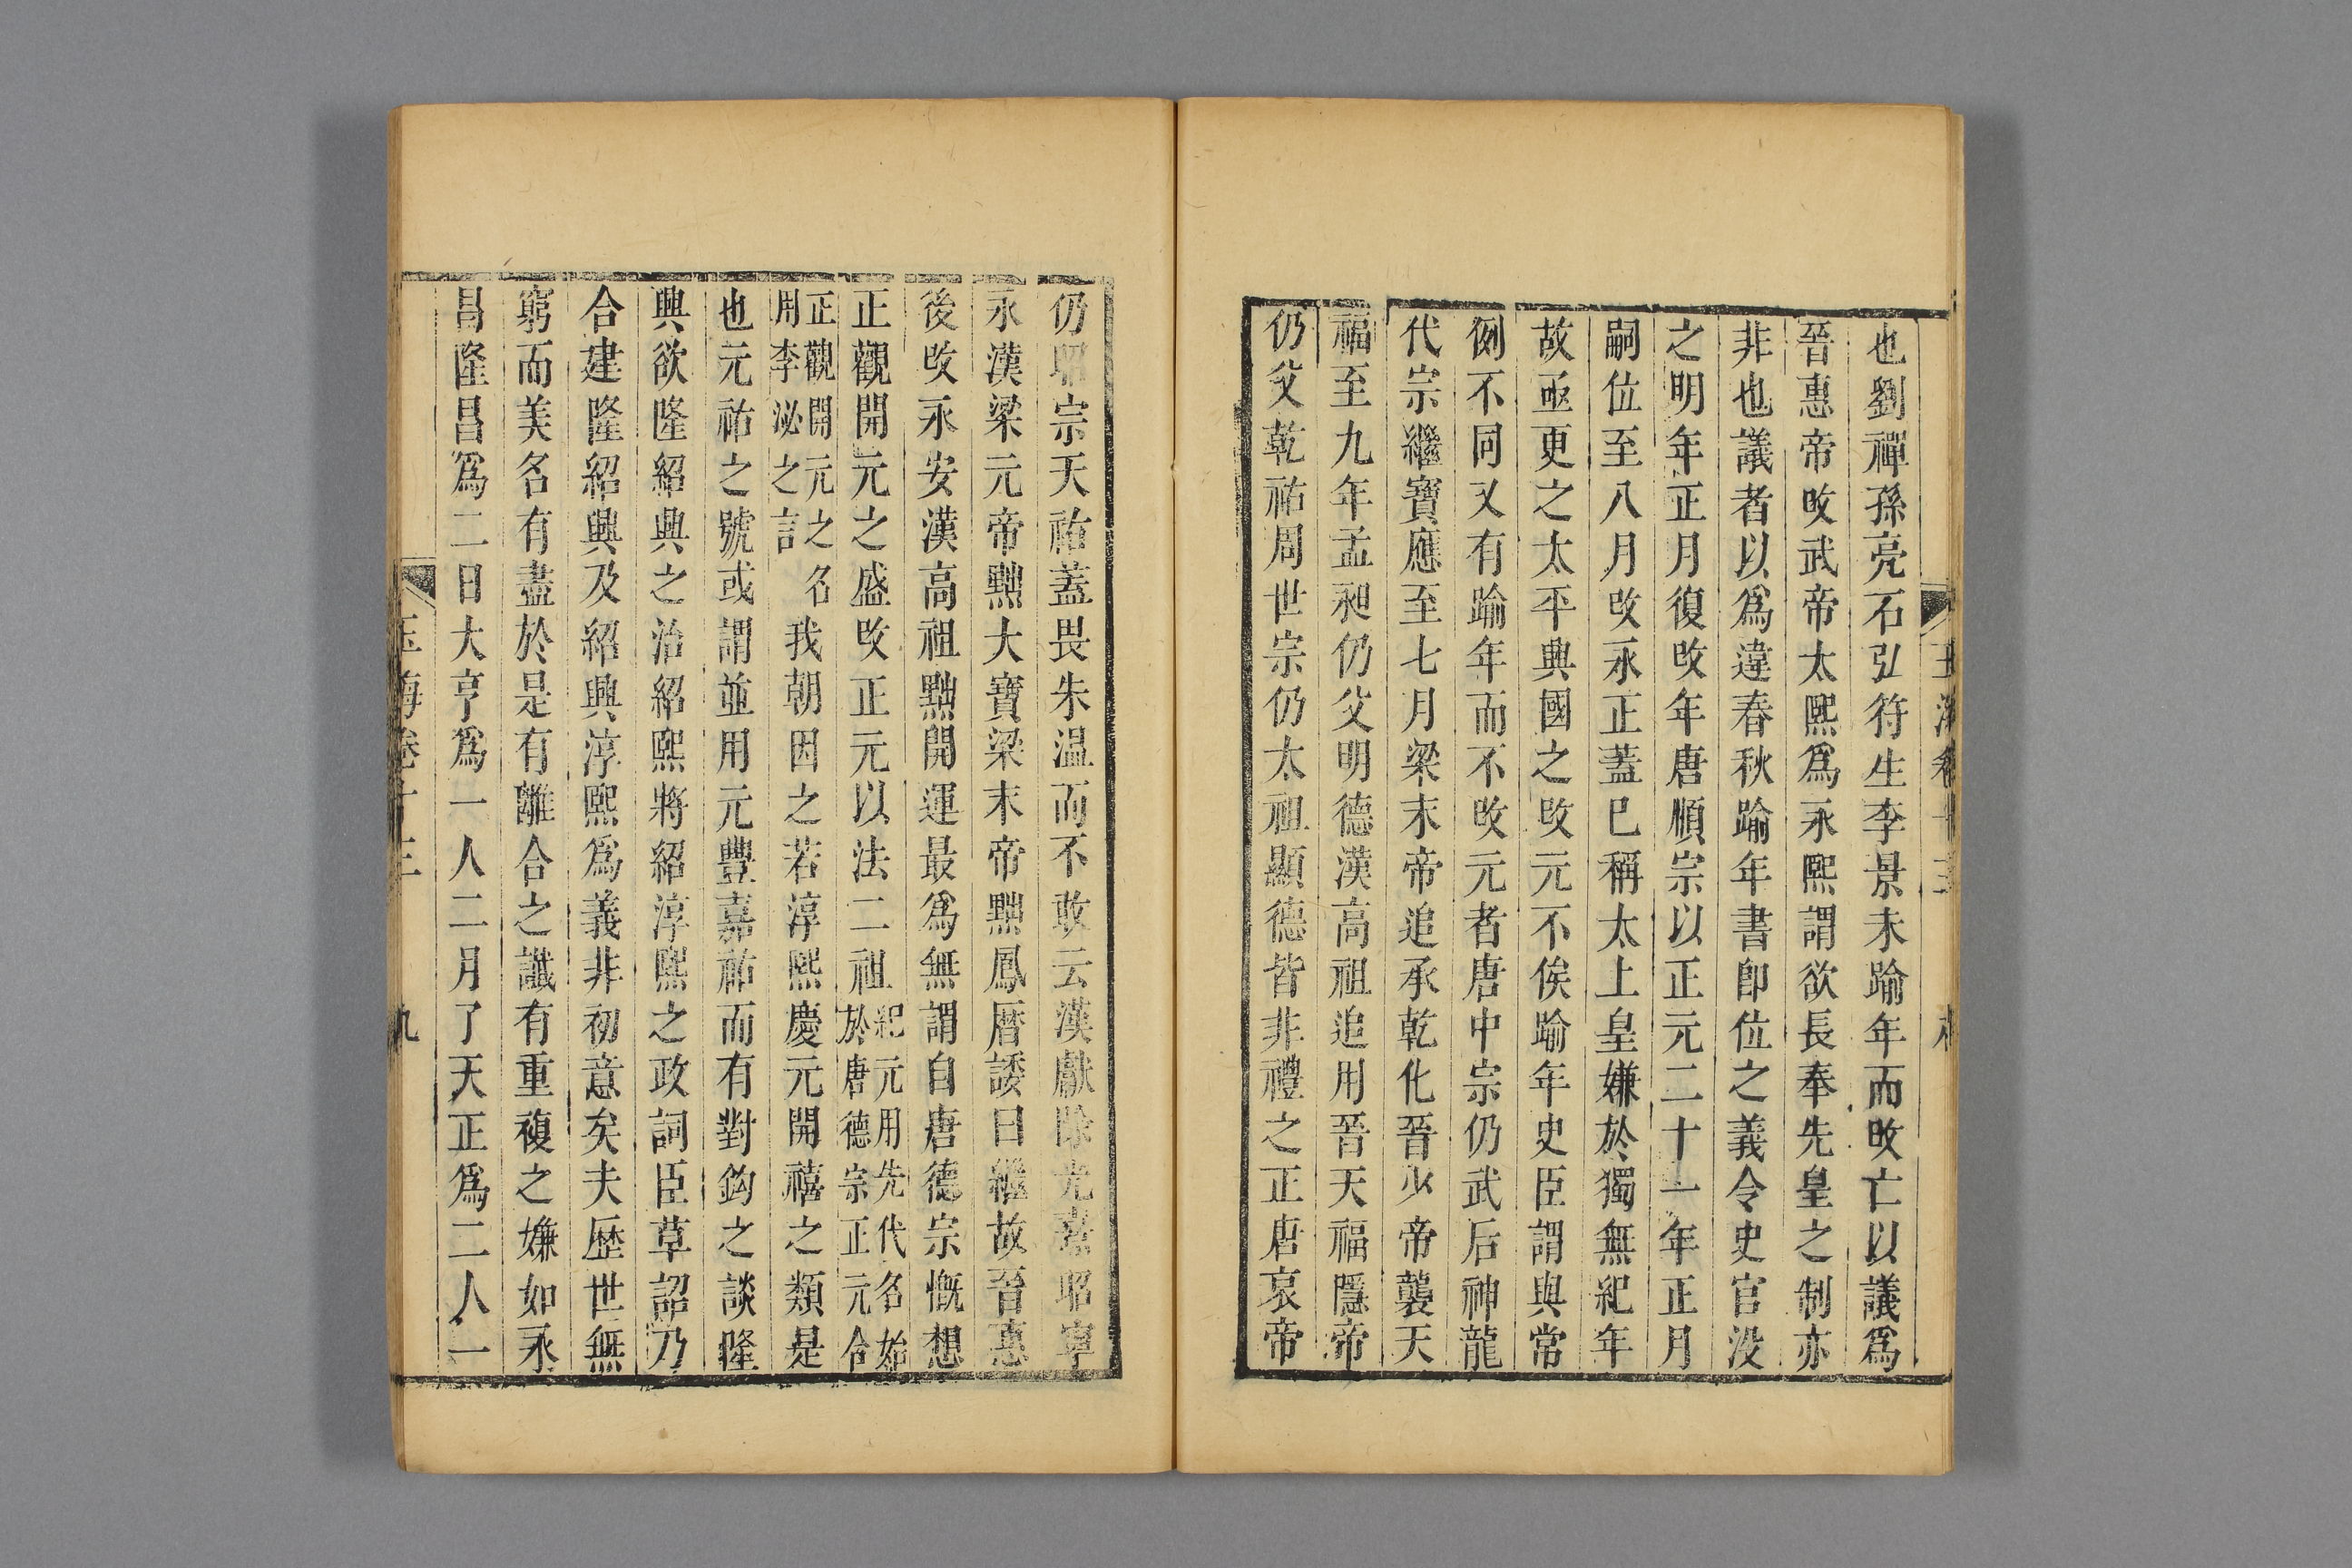 也劉禪孫亮石弘符生李景未踰年而改亡以議爲
晉惠帝改武帝太熙爲永熙謂欲長奉先皇之制亦
非也議者以爲違春秋踰年書即位之義令史官没
之明年正月復改年唐順宗以正元二十一年正月
嗣位至八月改永正蓋巳稱太上皇嫌於獨無紀年
故亟更之太平興國之改元不俟踰年史臣謂與常
例不同又有踰年而不改元者唐中宗仍武后神龍
代宗繼寶應至七月梁末帝追承乾化晉少帝襲天
福至九年孟昶仍父明德漢高祖追用晉天福隱帝
仍父乾祐周世宗仍太祖顯德皆非禮之正唐哀帝
仍昭宗天祐蓋畏朱温而不敢云漢獻除光熹昭寧
永漢梁元帝黜大寶梁末帝黜鳳曆諉曰繼故晉惠
後改永安漢高祖黜開運最爲無謂自唐德宗慨想
正觀開元之盛改正元以法二祖紀元用先代名始
於唐德宗正元合
正觀開元之名
用李泌之言我朝因之若淳熙慶元開禧之類是
也元祐之號或謂並用元豐嘉祐而有對鈞之談隆
興欲隆紹興之治紹熙將紹淳熙之政詞臣草詔乃
合建隆紹興及紹興淳熙爲義非初意矣夫歴世無
窮而美名有盡於是有離合之讖有重複之嫌如永
昌隆昌爲二日大亨爲一人二月了天正爲二人一
玉海卷十三 九